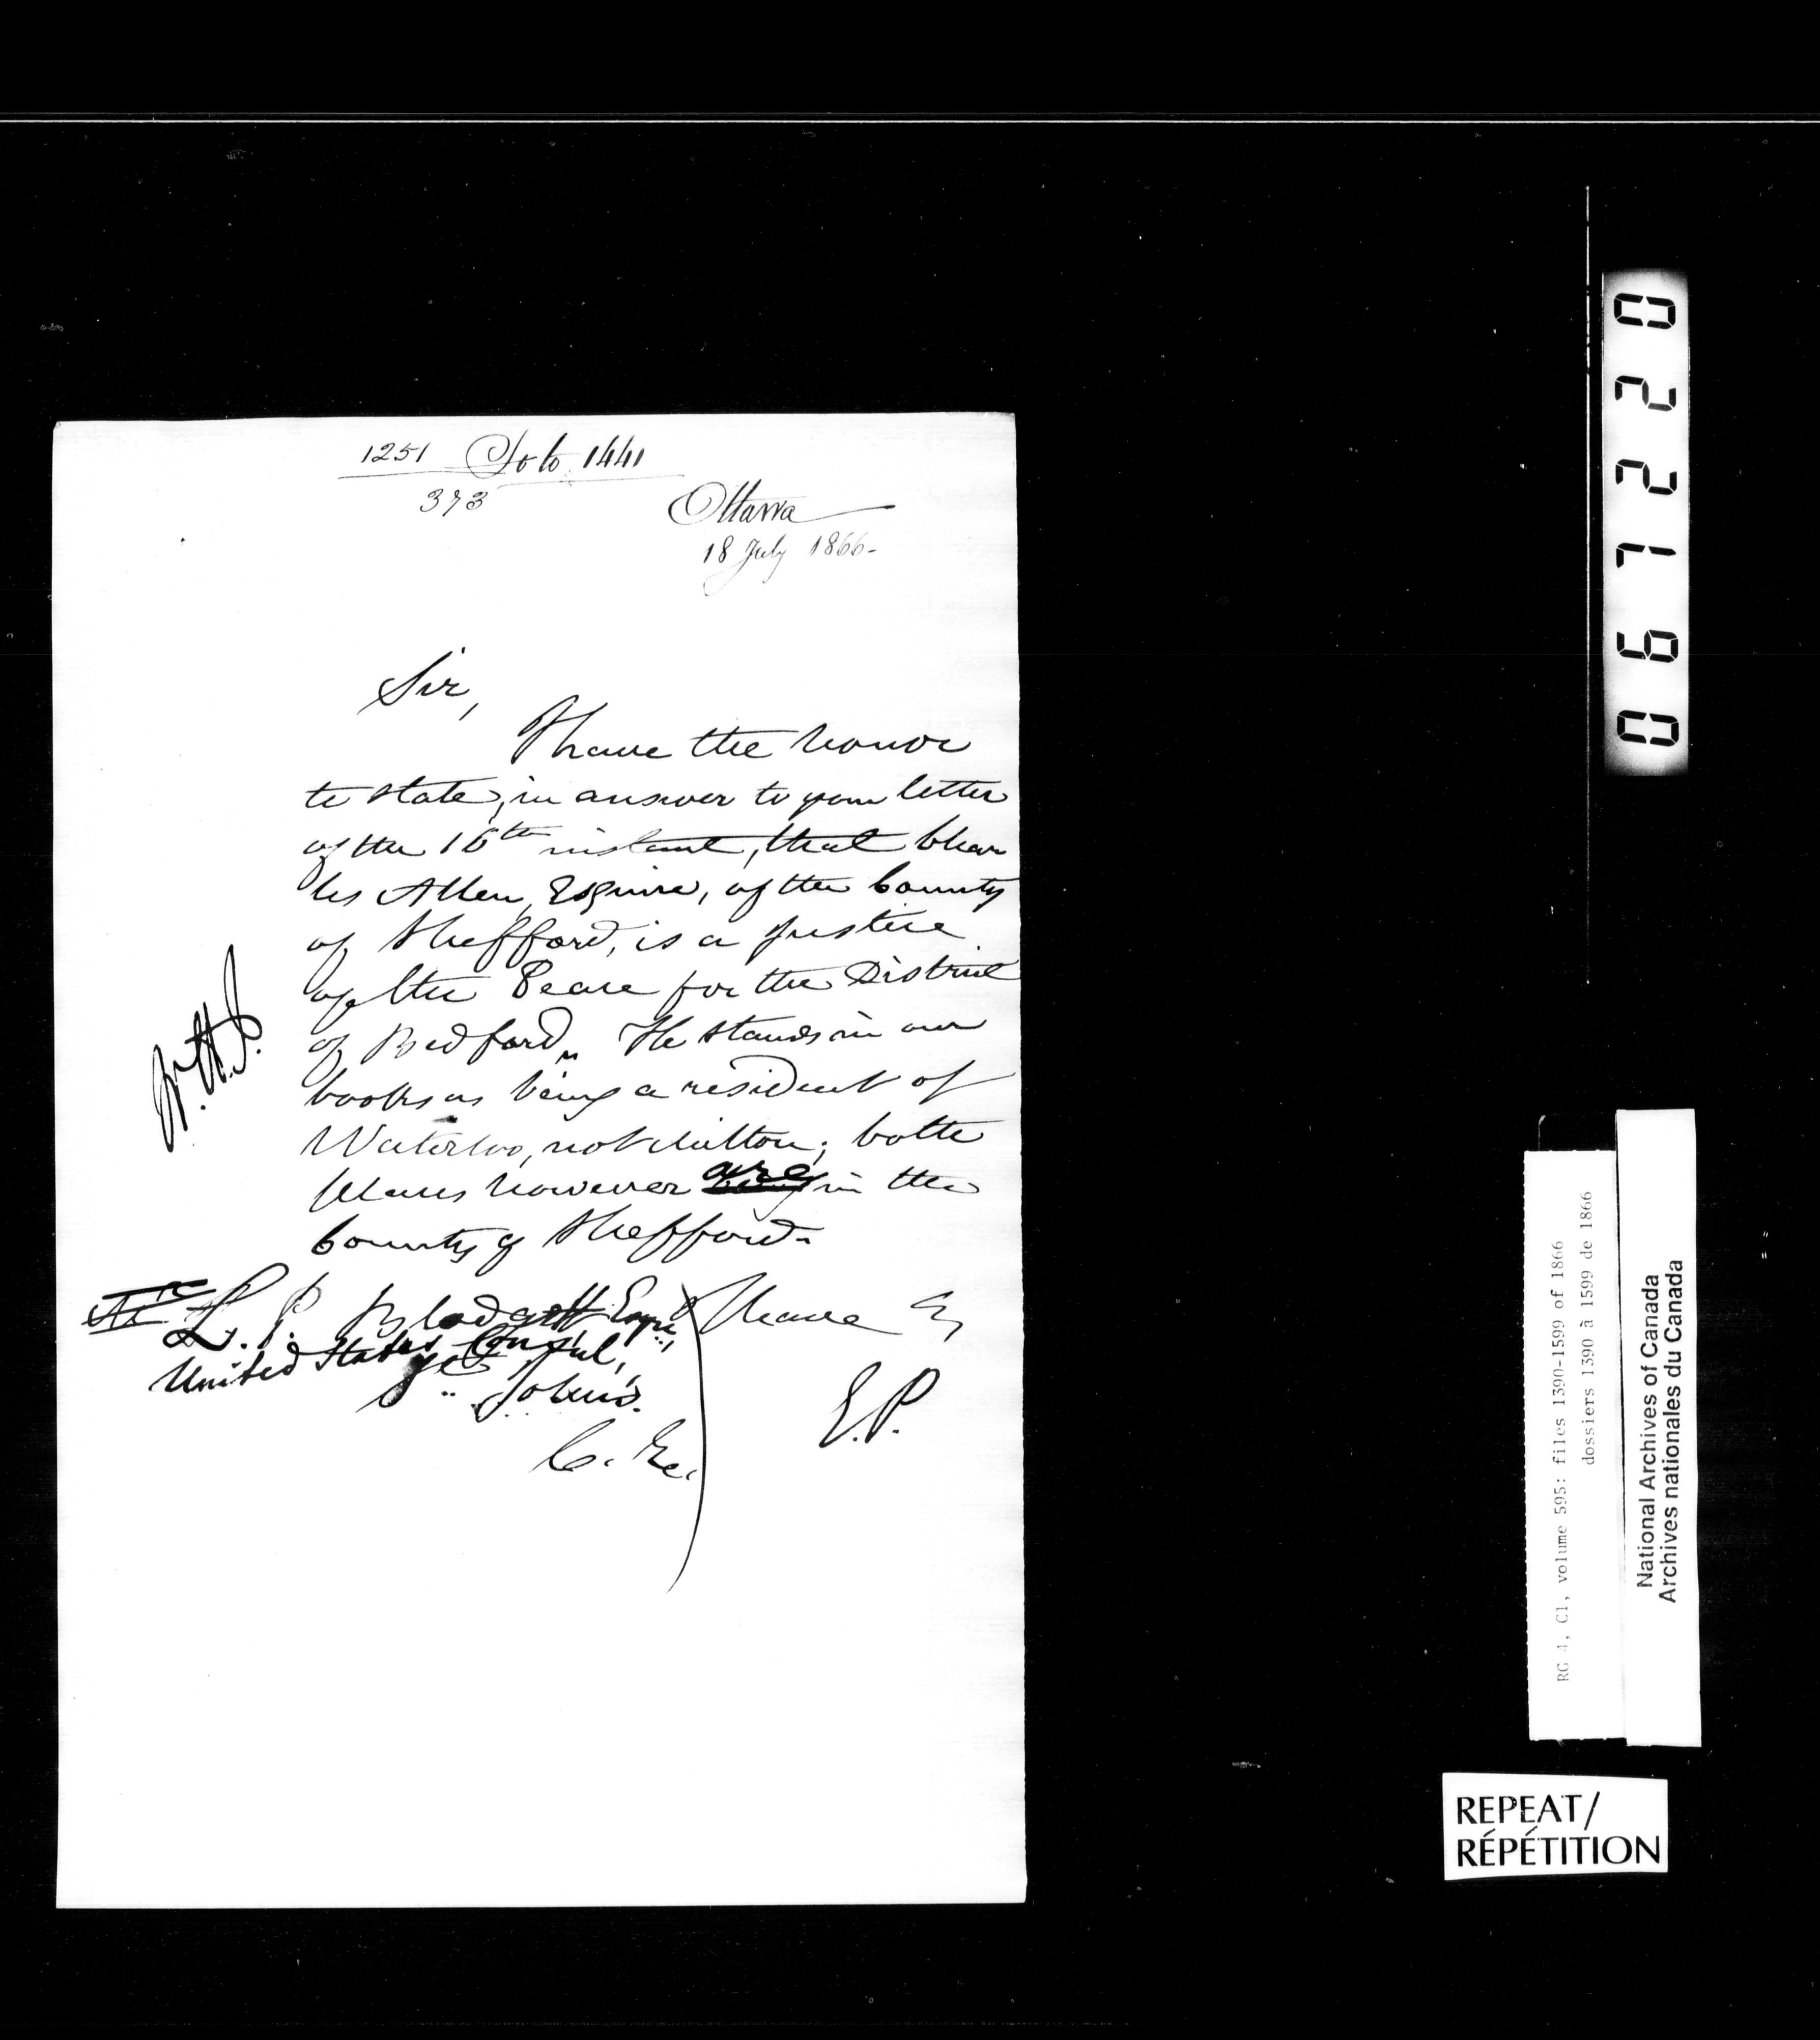 1251 Do to 1441
373
Ottawa
18 July 1866-
Sir,
I have the honor
to state, in answer to your letter
of the 16th instant, that Char
les Allen, Esquire, of the County
of Shefford, is a Justice
of the Peace for the District
of Bedford. He stands in our
books as being a resident of
Waterloo, not Milton; both
places however are in the
County of Shefford.
I have &
E.P.
L. P. Blodgett Esqre,
United States Consul,
St. John's.
C. E.
W.H.J.
0 2 2 7 9 0
RG 4, C1, volume 595: files 1390-1599 of 1866
dossiers 1390 à 1599 de 1866
National Archives of Canada
Archives nationales du Canada
REPEAT/
RÉPÉTITION